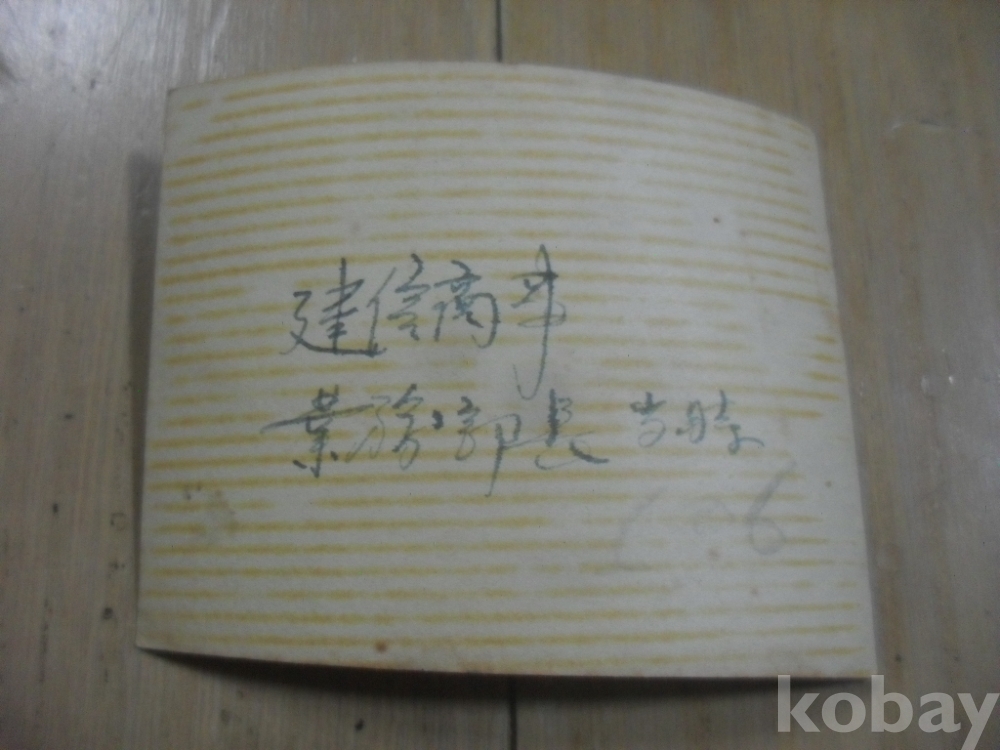 建信商事
業務部長 当時
kobay